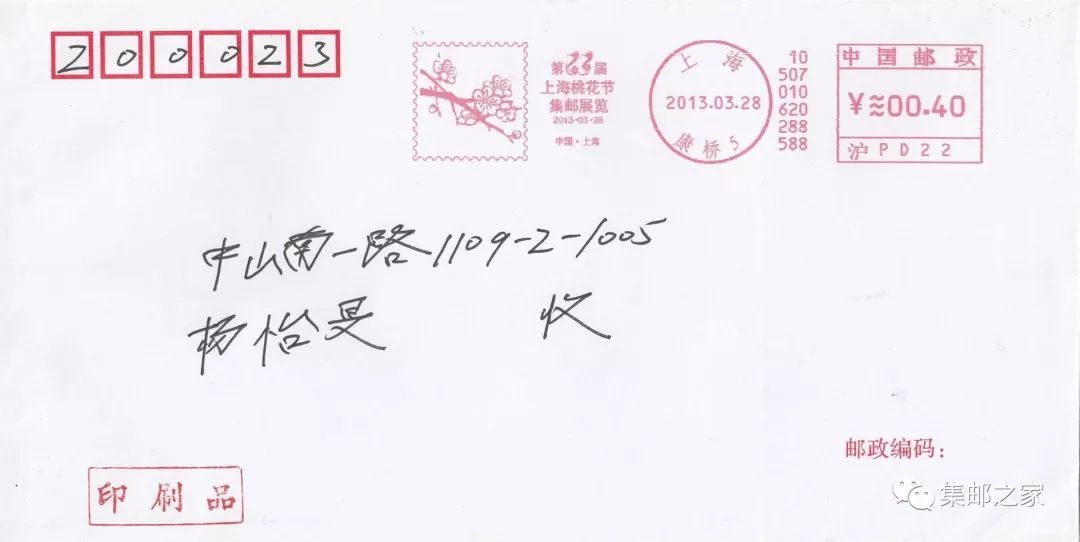 200023
第23届
上海桃花节
集邮展览
2013-03-28
中国·上海
上海
2013.03.28
康桥5
10
507
010
620
288
588
中国邮政
¥≈00.40
沪PD22
中山南一路1109-2-1005
杨怡旻 收
邮政编码:
印刷品
集邮之家